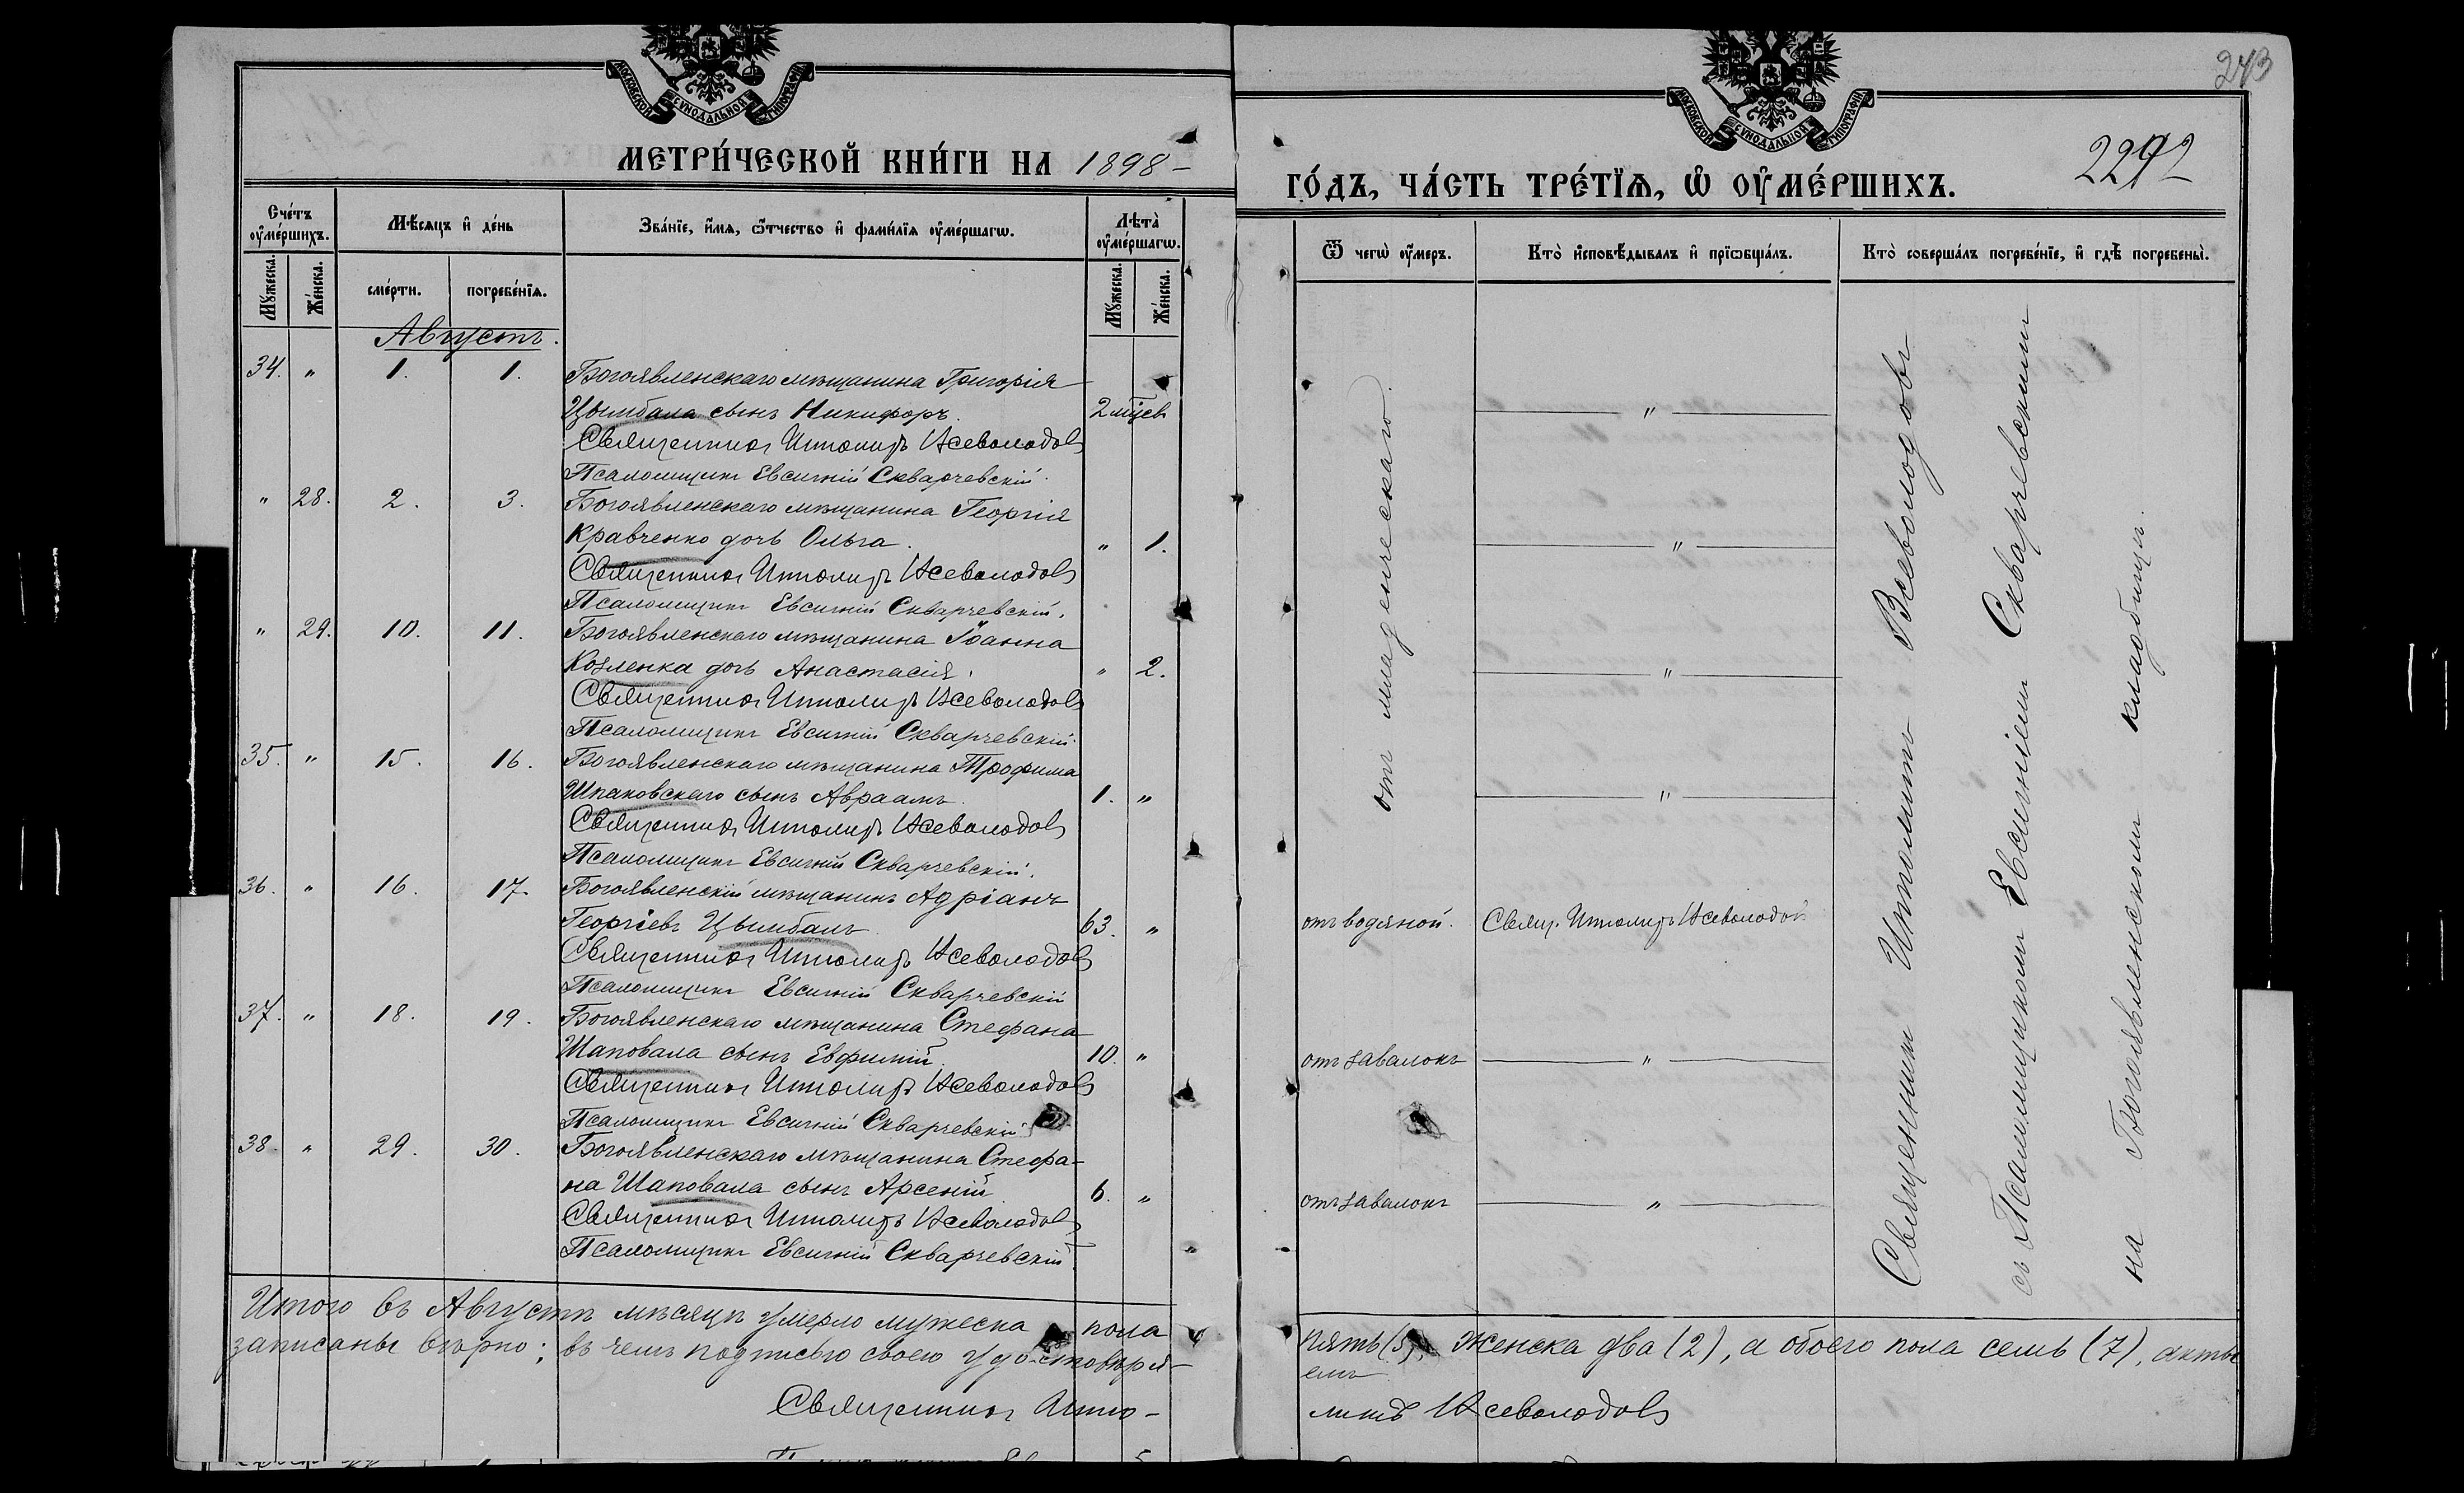 МОСКОВСКОЙ СѴНОДАЛЬНОЙ ТИПОГРАФІИ
МЕТРИ́ЧЕСКОЙ КНИ́ГИ НА 1898 –
Сче́тъ оу҆ме́ршихъ.
Мꙋ́жеска.
Же́нска.
Мѣ́сяцъ и҆ де́нь
сме́рти.
погребе́нїѧ.
Зва́нїе, и҆́мѧ, ѻ҆́тчество и҆ фами́лїѧ оу҆ме́ршагѡ.
Лѣ́та оу҆ме́ршагѡ.
Мꙋ́жеска.
Же́нска.
Августъ.
34. " 1. 1. Богоявленскаго мѣщанина Григорія
Цымбала сынъ Никифоръ. 2 мѣсяц.
Священникъ Ипполитъ Всеволодовъ
Псаломщикъ Евсигній Скварчевскій.
" 28. 2. 3. Богоявленскаго мѣщанина Георгія
Кравченко дочь Ольга. " 1.
Священникъ Ипполитъ Всеволодовъ
Псаломщикъ Евсигній Скварчевскій.
" 29. 10. 11. Богоявленскаго мѣщанина Іоанна
Козленка дочь Анастасія. " 2.
Священникъ Ипполитъ Всеволодовъ
Псаломщикъ Евсигній Скварчевскій.
35. " 15. 16. Богоявленскаго мѣщанина Трофима
Шпаковскаго сынъ Авраамъ. 1. "
Священникъ Ипполитъ Всеволодовъ
Псаломщикъ Евсигній Скварчевскій.
36. " 16. 17. Богоявленскій мѣщанинъ Адріанъ
Георгіевъ Цымбалъ 63. "
Священникъ Ипполитъ Всеволодовъ
Псаломщикъ Евсигній Скварчевскій
37. " 18. 19. Богоявленскаго мѣщанина Стефана
Шаповала сынъ Евфимій. 10. "
Священникъ Ипполитъ Всеволодовъ
Псаломщикъ Евсигній Скварчевскій
38. " 29. 30. Богоявленскаго мѣщанина Стефа-
на Шаповала сынъ Арсеній 6. "
Священникъ Ипполитъ Всеволодовъ
Псаломщикъ Евсигній Скварчевскій.
Итого въ Августѣ мѣсяцѣ умерло мужеска пола
записаны вѣрно; въ чемъ подписью своею удостовѣря-
Священникъ Иппо-
243
МОСКОВСКОЙ СѴНОДАЛЬНОЙ ТИПОГРАФІИ
ГО́ДЪ, ЧА́СТЬ ТРЕ́ТЇѦ, Ѡ҆ ОУ҆МЕ́РШИХЪ.
Ѿ чегѡ̀ оу҆́меръ.
Кто̀ и҆сповѣ́дывалъ и҆ прїѡбща́лъ.
Кто̀ соверша́лъ погребе́нїе, и҆ гдѣ̀ погребены̀.
отъ младенческаго.
"
"
"
"
отъ водяной. Свящ. Ипполитъ Всеволодовъ
отъ завалокъ "
отъ завалокъ "
Священникъ Ипполитъ Всеволодовъ
съ Псаломщикомъ Евсигніемъ Скварчевскимъ
на Богоявленскомъ кладбищѣ.
пять (5), женска два (2), а обоего пола семь (7), акты
емъ
литъ Всеволодовъ